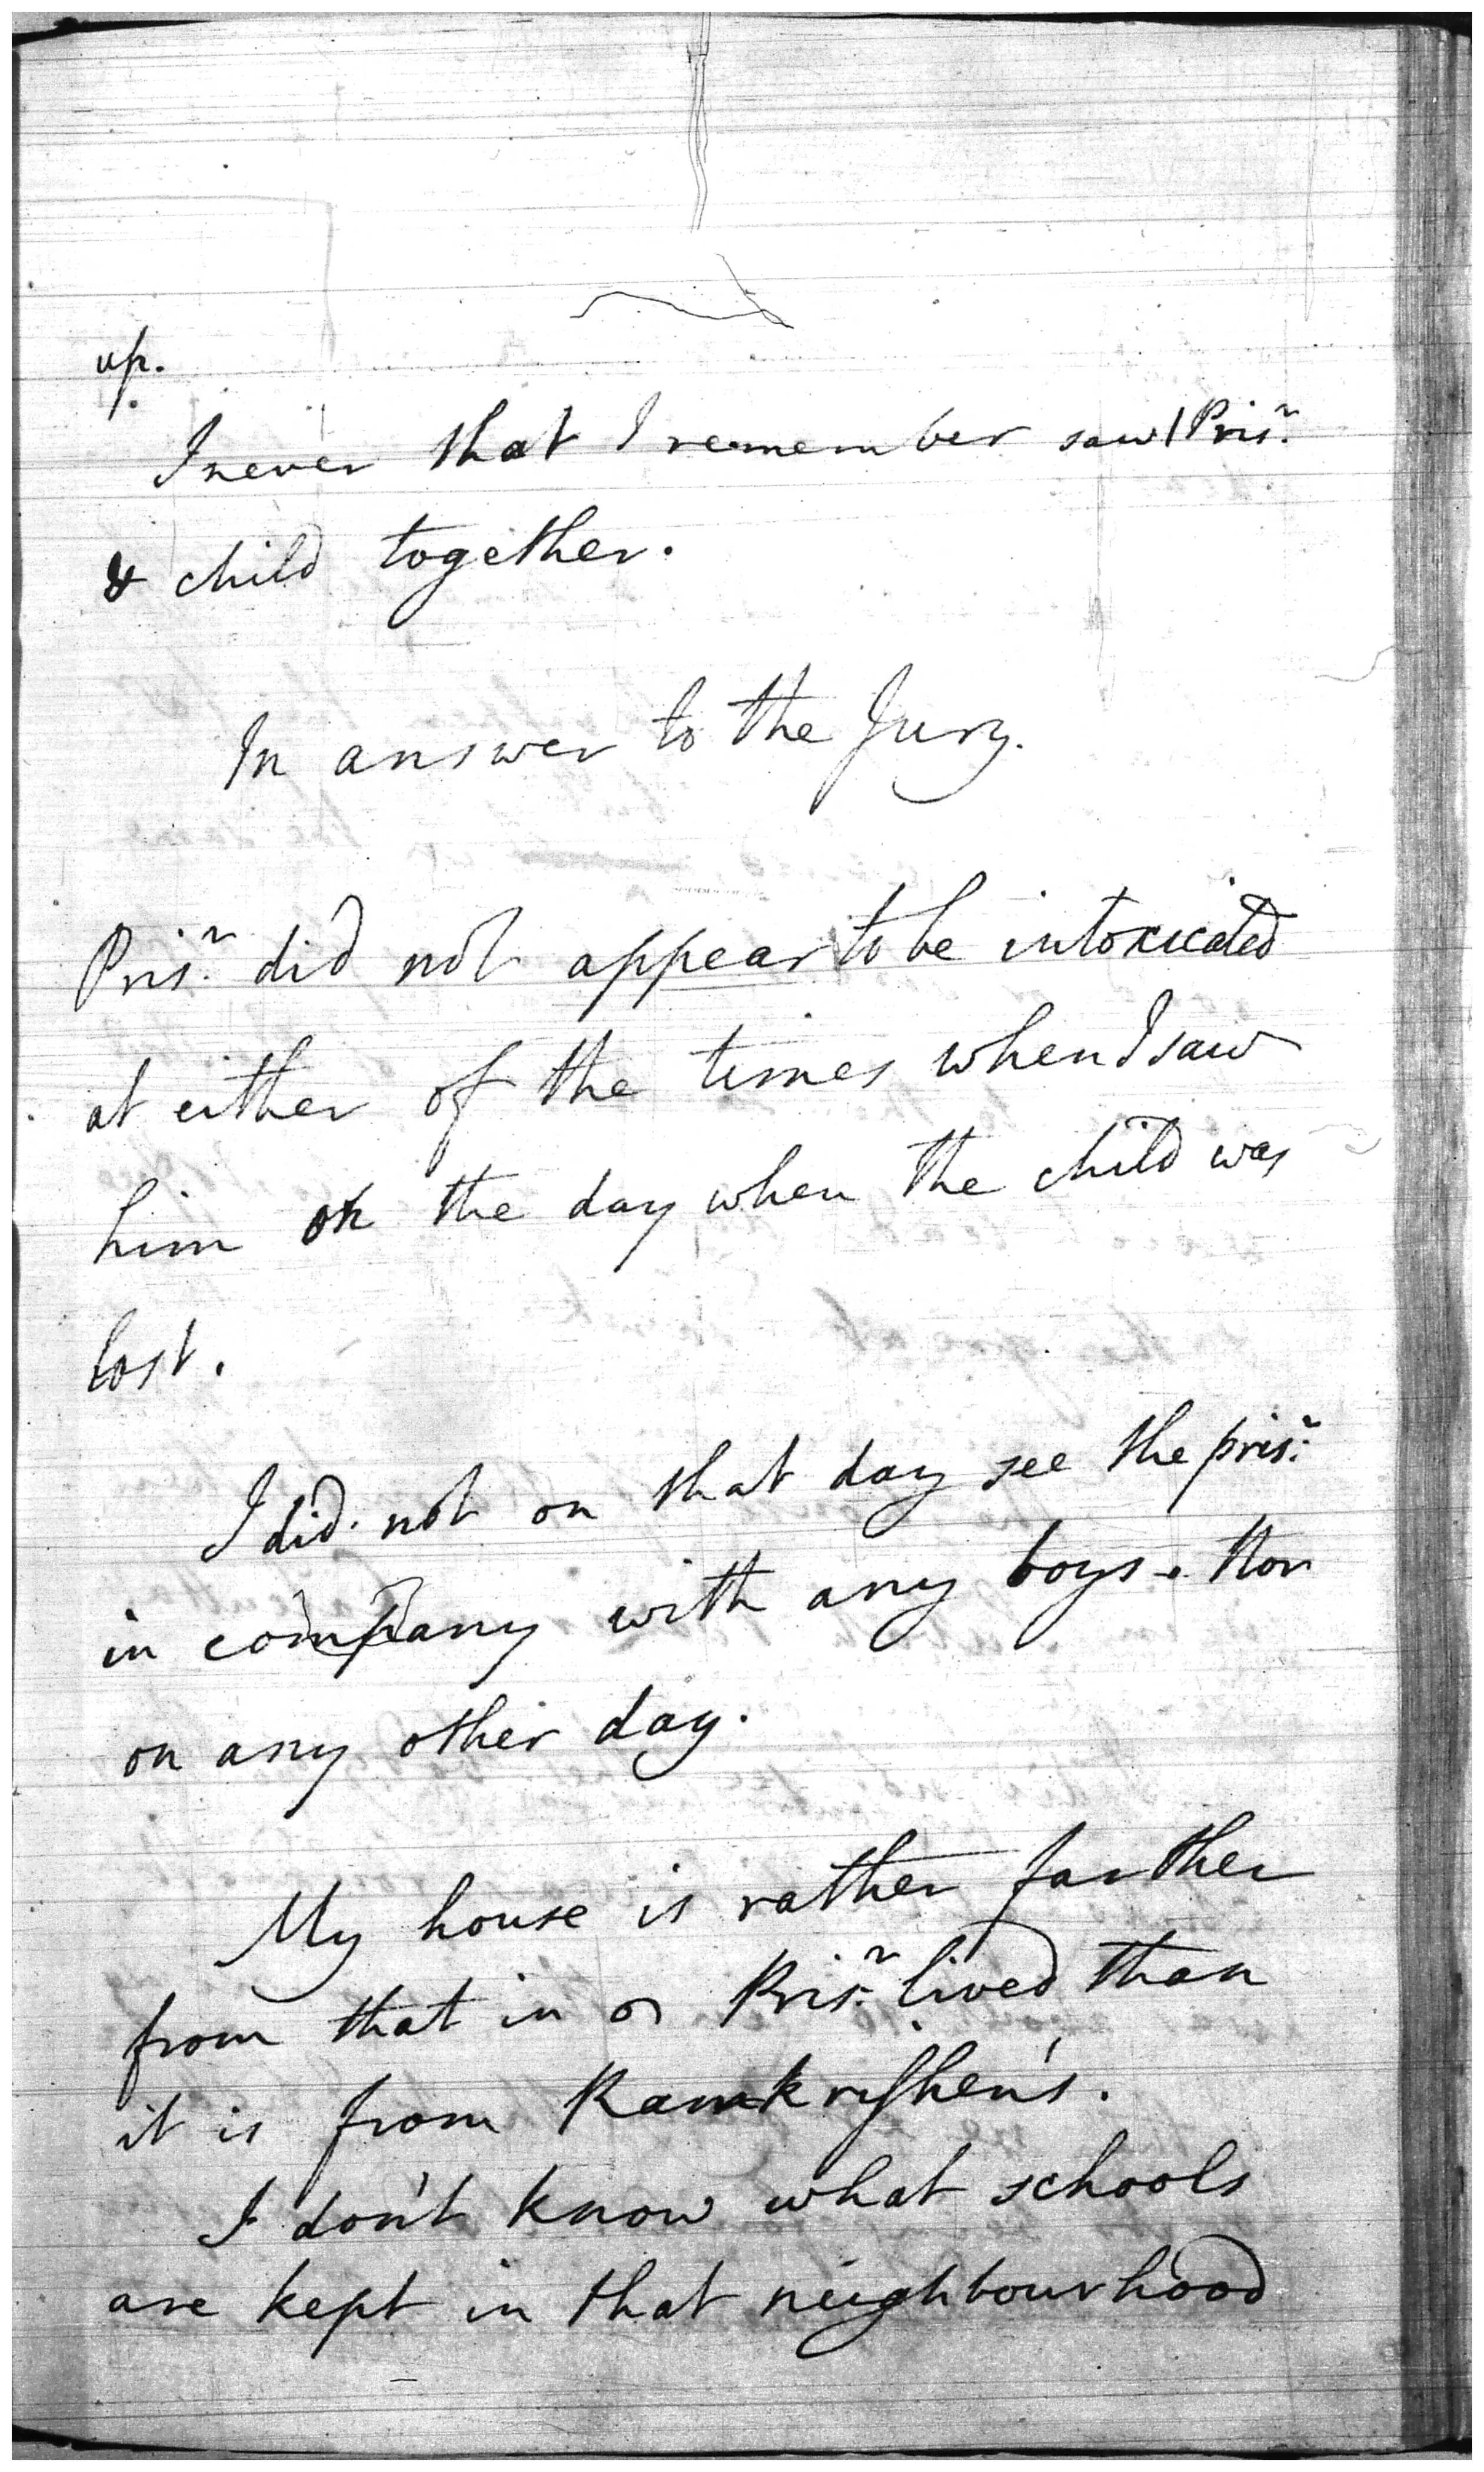 up.
I never that I remember saw Pris.r
& child together.
In answer to the Jury.
Pris.r did not appear to be intoxicated
at either of the times when I saw
him on the day when the child was
lost.
I did not on that day see the pris.r
in company with any boys. Nor
on any other day.
My house is rather farther
from that in Pris.r lived than
it is from Ramkrishen's.
I don't know what schools
are kept in that neighbourhood